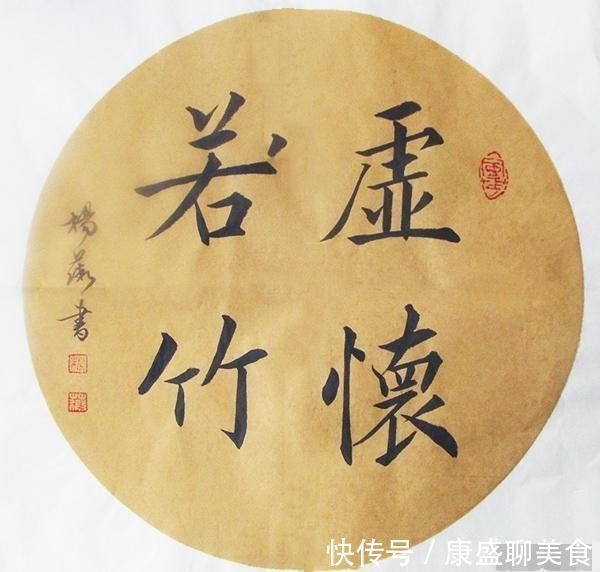 虚懷
若竹
楊 書
快传号 / 康盛聊美食